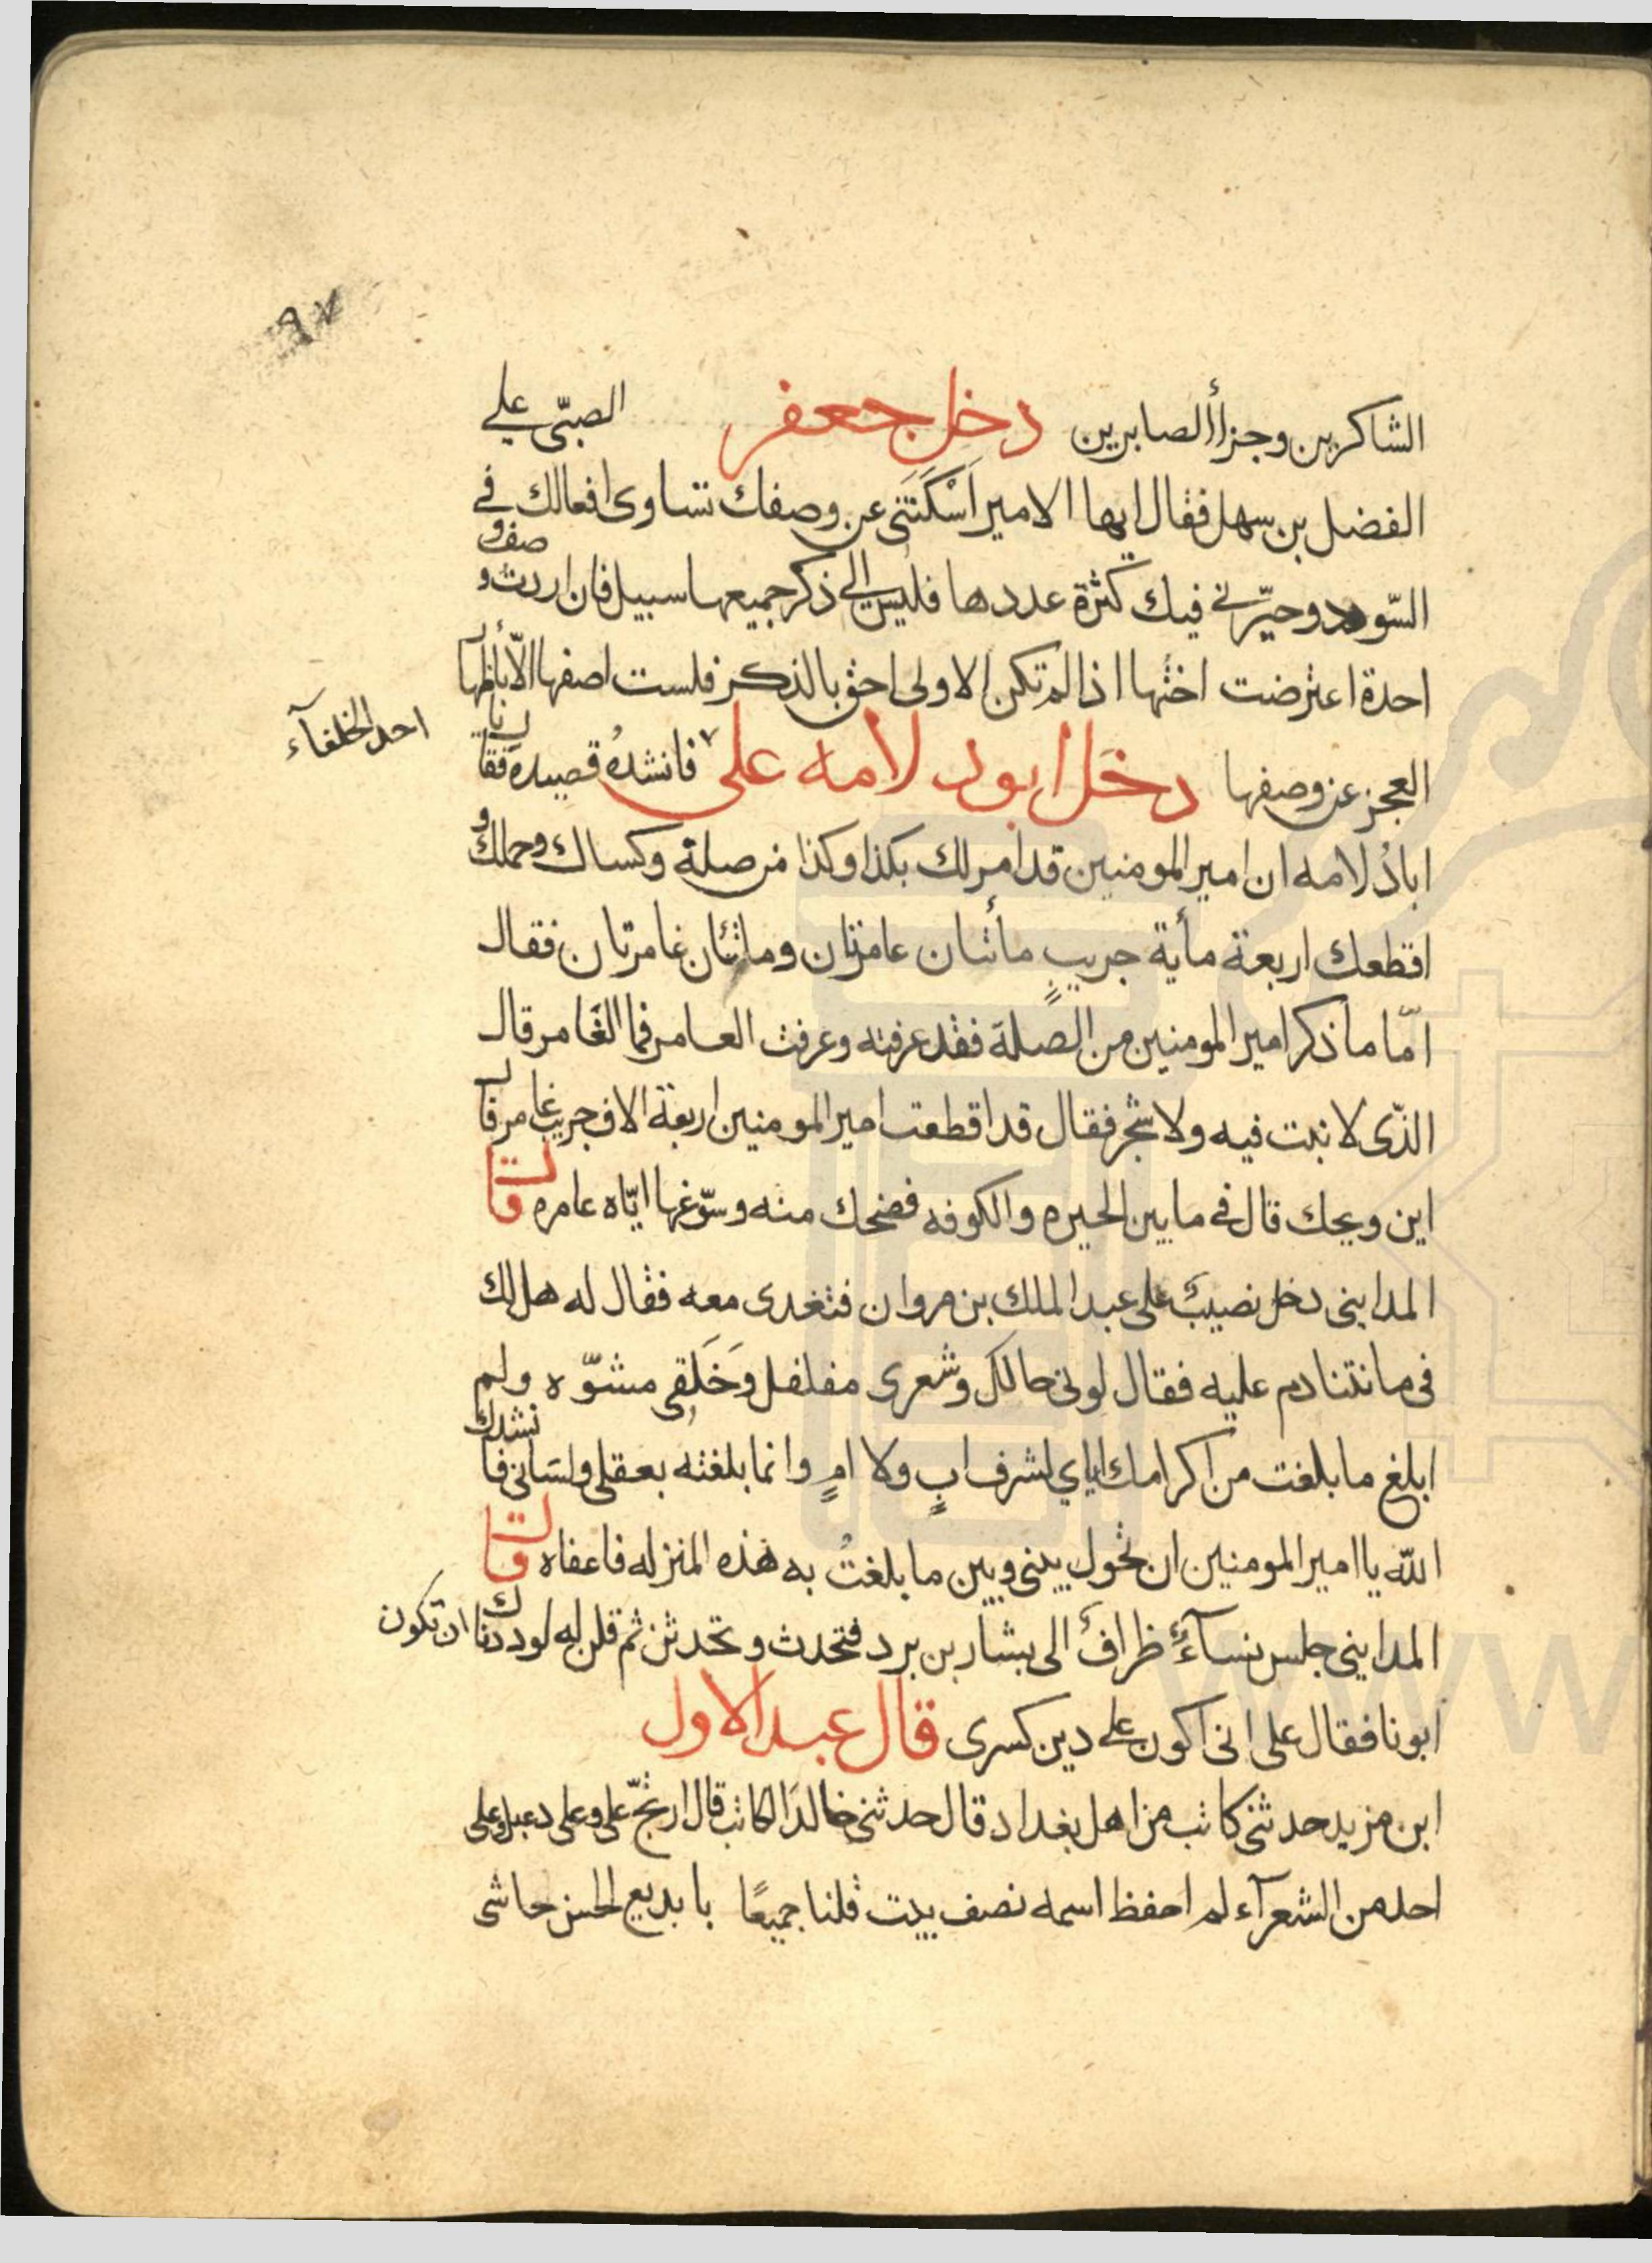 ٩٧
الشاكرين وجزأ الصابرين دخل جعفر الصبّى على
الفضل بن سهل فقال ايها الامير اَسْكَتَنى عن وصفك تساوى افعالك فى
السّودد وحيّرنى فيك كثرة عددها فليس الى ذكر جميعها سبيل فان اردت وصف و
احدة اعترضت اختها اذا لم تكن الاولى احق بالذكر فلست اصفها الّا بأظهار
العجز عن وصفها دخل ابو دلامه على فانشدهُ قصيدة فقال يا
احد الخلفآء
ابادُلامه ان امير المومنين قد امر لك بكذا وكذا من صلة وكساك وحملك و
اقطعك اربعة مأية جريبٍ مأتنان عامرتان وماتئان غامرتان فقال
امّا ما ذكر امير المومنين من الصلة فقد عرفته وعرفت العامر فما الغَامر قال
الذّى لا نبت فيه ولا شجر فقال قد اقطعت امير المومنين اربعة الاف جريب غامر قال
اين ويحك قال فى ما بين الحيره والكوفه فضحك منه وسوّغها ايّاه عامره قال
المداينى دخل نصيبٌ على عبد الملك بن مروان فتغدى معه فقال له هل لك
فى ما نتنادم عليه فقال لونى حالك وشعرى مفلفل وَخَلِقى مشوّه ولم
ابلغ ما بلغت من اكرامك اياي لشرف ابٍ ولا امٍ وانما بلغته بعقلى ولسَانى فانشدك
اللّه يا امير المومنين ان تحول بينى وبين ما بلغتُ به هذه المنزله فاعفاه قال
المداينى جلس نسآءٌ ظرافٌ الى بشار بن برد فتحدث وتحدثن ثم قلن له لوددنا انك تكون
ابونا فقال على انى اكون على دين كسرى قال عبد الاول
ابن مزيد حدثنى كاتب من اهل بغداد قال حدثنى خالد الكاتب قال ارتجّ علىّ وعلى دعبل وعلى
احد من الشعرآء لم احفظ اسمه نصف بيت قلنا جميعًا يا بديع الحسن حاشى